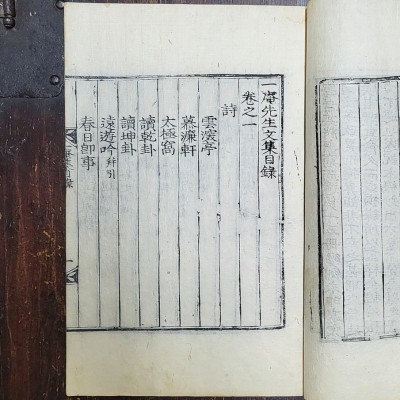 一庵先生文集目錄
卷之一
詩
雲濱亭
慕濂軒
太極窩
讀乾卦
讀坤卦
遠遊吟 并引
春日卽事